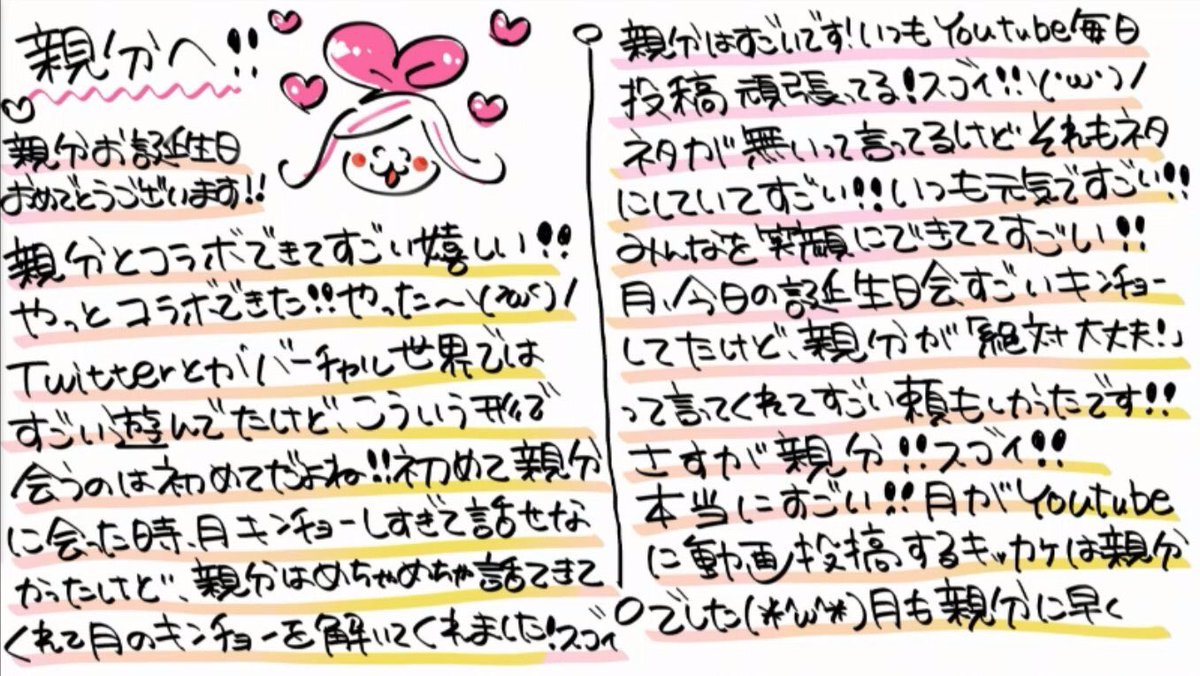 親分へ!!
親分お誕生日
おめでとうございます!!
親分とコラボできてすごい嬉しい!!
やっとコラボできた!!やった〜\(^ω^)/
Twitterとかバーチャル世界では
すごい遊んでたけど、こういう形で
会うのは初めてだよね!!初めて親分
に会った時、月キンチョーしすぎて話せな
かったけど、親分はめちゃめちゃ話てきて
くれて月のキンチョーを解いてくれました!スゴイ
親分はすごいです!いつもYoutube毎日
投稿頑張ってる!スゴイ!!\(・ω・)/
ネタが無いって言ってるけどそれもネタ
にしていてすごい!!いつも元気ですごい!!
みんなを笑顔にできててすごい!!
月、今日の誕生日会すごいキンチョー
してたけど、親分が「絶対大丈夫!」
って言ってくれてすごい頼もしかったです!!
さすが親分!!スゴイ!!
本当にすごい!!月がYoutube
に動画投稿するキッカケは親分
でした(*^ω^*)月も親分に早く